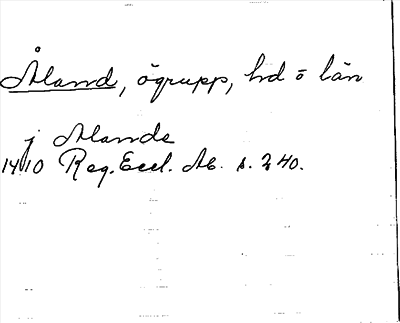 Åland, ögrupp, hd o län
j Alande
1410 Reg. Eccl. Ab. s. 240.